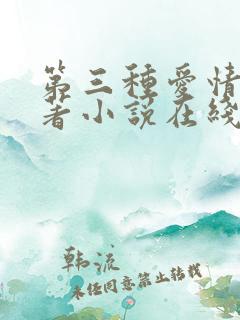 第三種愛情
著小說在綫
韩流
未经同意禁止转载